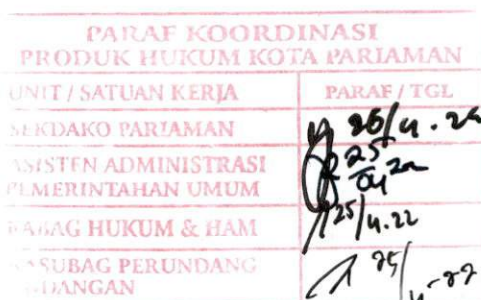 PARAF KOORDINASI
PRODUK HUKUM KOTA PARIAMAN
UNIT / SATUAN KERJA PARAF / TGL
SEKDAKO PARIAMAN 26/4.22
ASISTEN ADMINISTRASI 25
PEMERINTAHAN UMUM 04 22
KABAG HUKUM & HAM 25/4.22
KASUBAG PERUNDANG 25/
UNDANGAN